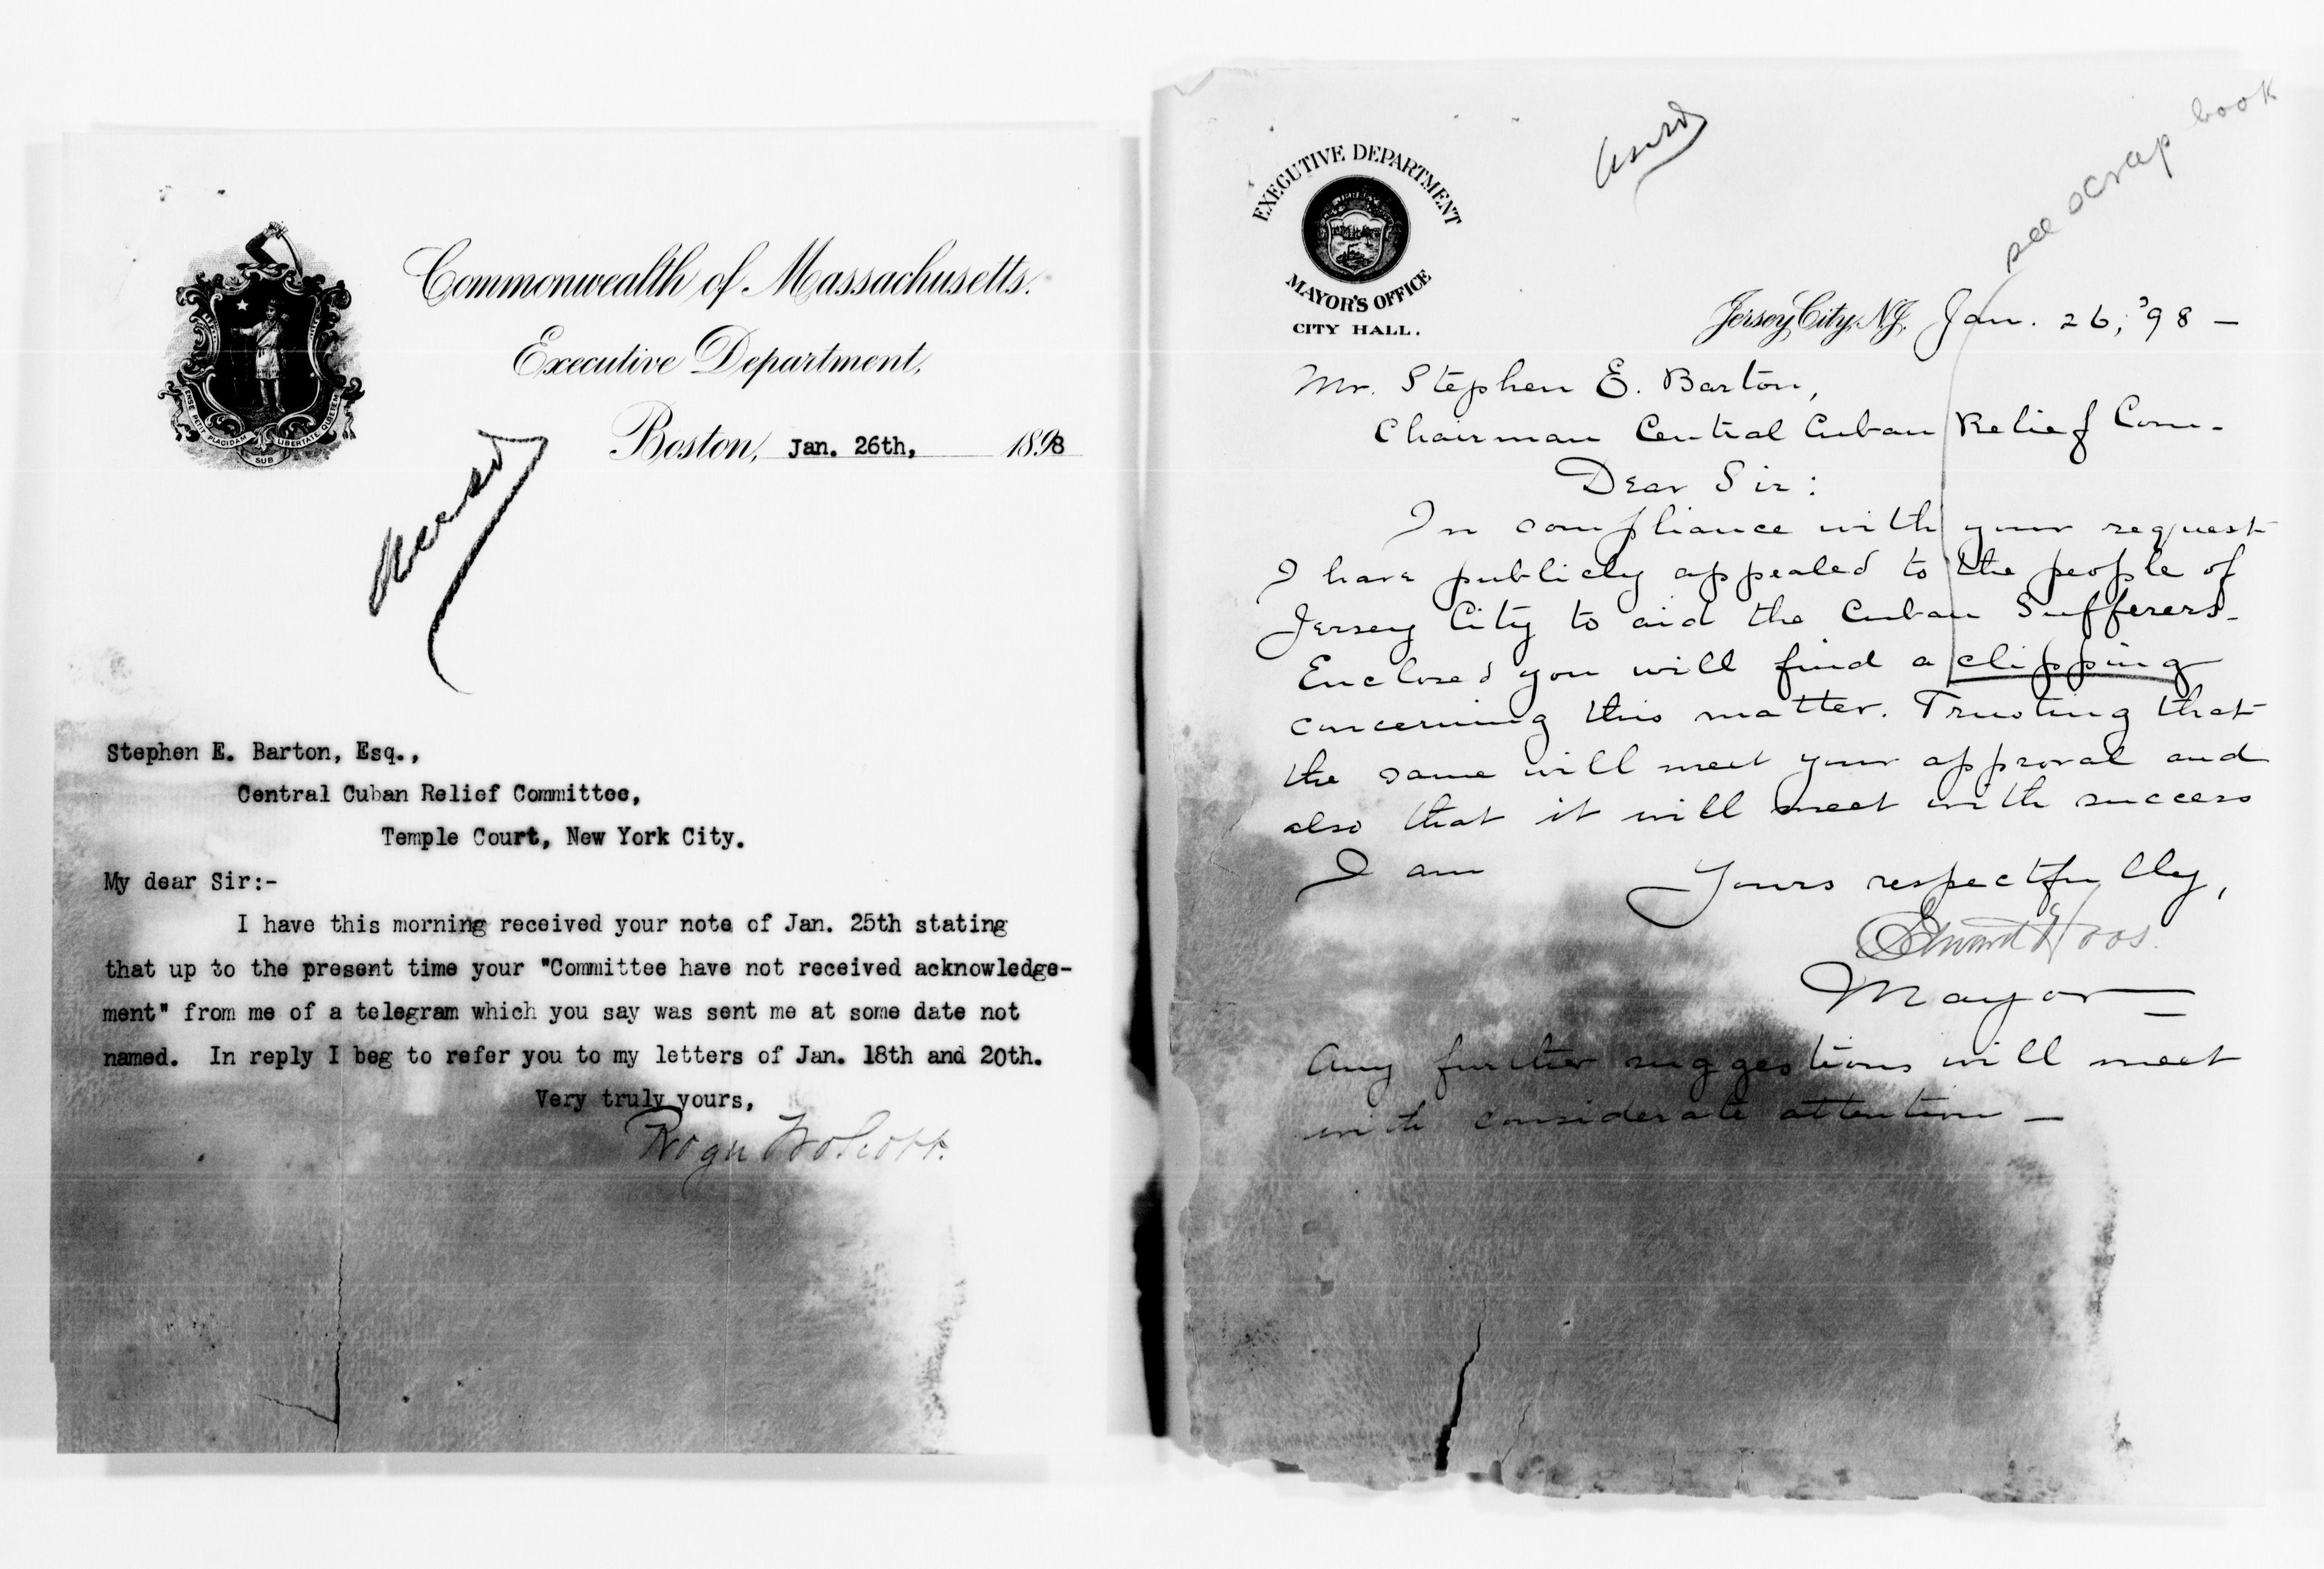 Commonwealth of Massachusetts.
Executive Department,
Boston, Jan. 26th, 1898
ENSE PETIT PLACIDAM
SUB
LIBERTATE QUIETEM
Stephen E. Barton, Esq.,
Central Cuban Relief Committee,
Temple Court, New York City.
My dear Sir:-
I have this morning received your note of Jan. 25th stating
that up to the present time your "Committee have not received acknowledge-
ment" from me of a telegram which you say was sent me at some date not
named. In reply I beg to refer you to my letters of Jan. 18th and 20th.
Very truly yours,
Roger Wolcott.
see scrap book
EXECUTIVE DEPARTMENT
MAYOR'S OFFICE
CITY HALL.
Jersey City, N.J. Jan. 26, '98 —
Mr. Stephen E. Barton,
Chairman Central Cuban Relief Com.
Dear Sir:
In compliance with your request
I have publicly appealed to the people of
Jersey City to aid the Cuban Sufferers.
Enclosed you will find a clipping
concerning this matter. Trusting that
the same will meet your approval and
also that it will meet with success
I am Yours respectfully,
Edward Hoos.
Mayor
Any further suggestions will meet
with considerate attention —